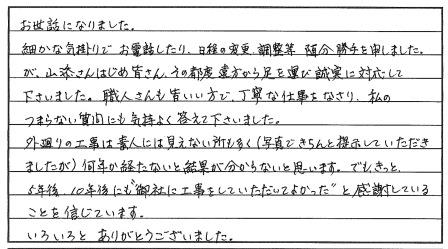 お世話になりました。
細かな気掛りでお電話したり、日程の変更、調整等 随分勝手を申しました。
が、山添さんはじめ皆さん、その都度遠方から足を運び誠実に対応して
下さいました。職人さんも皆いい方で、丁寧な仕事をなさり、私の
つまらない質問にも気持よく答えて下さいました。
外廻りの工事は素人には見えない所も多く(写真できちんと提示していただき
ましたが)何年か経たないと結果が分からないと思います。でもきっと、
5年後、10年後にも"御社に工事をしていただいてよかった"と感謝している
ことを信じています。
いろいろと ありがとうございました。